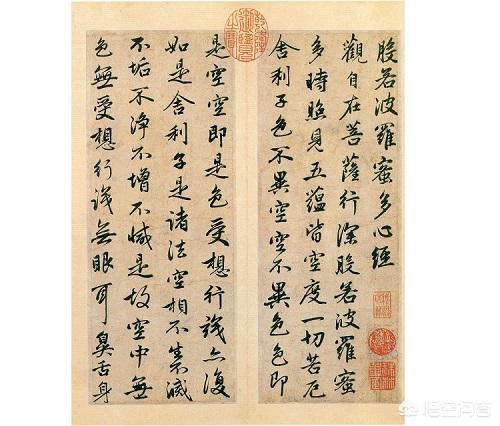 般若波羅蜜多心經
觀自在菩薩行深般若波羅蜜
多時照見五蘊皆空度一切苦厄
舍利子色不異空空不異色色即
是空空即是色受想行識亦復
如是舍利子是諸法空相不生不滅
不垢不淨不增不減是故空中無
色無受想行識無眼耳鼻舌身
悟空问答